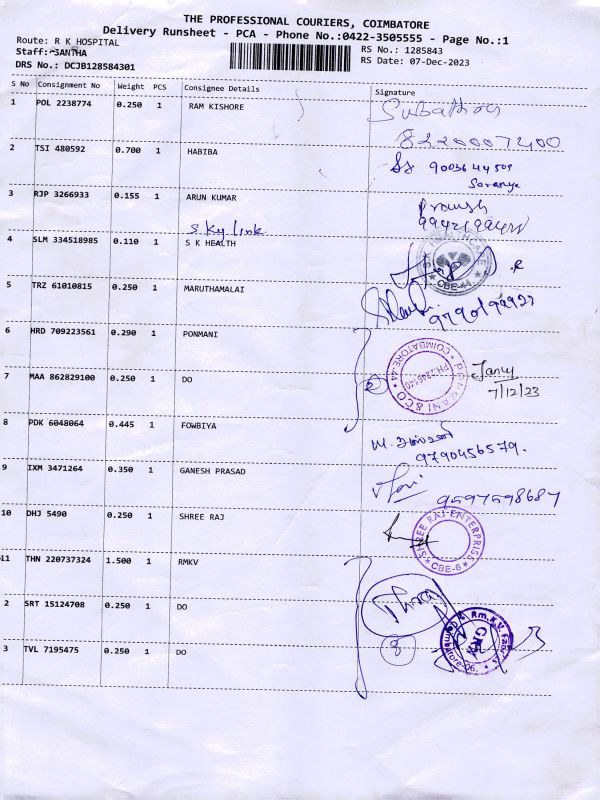 THE PROFESSIONAL COURIERS, COIMBATORE
Delivery Runsheet - PCA - Phone No.:0422-3505555 - Page No.:1
Route: R K HOSPITAL
RS No.: 1285843
Staff: SANTHA
RS Date: 07-Dec-2023
DRS No.: DCJB128584301
S No Consignment No Weight PCS Consignee Details Signature
1 POL 2238774 0.250 1 RAM KISHORE
8220007400
2 TSI 480592 0.700 1 HABIBA
9003644509
Saranya
3 RJP 3266933 0.155 1 ARUN KUMAR
Sky link
4 SLM 334518985 0.110 1 S K HEALTH
CBE-44
5 TRZ 61010815 0.250 1 MARUTHAMALAI
6 HRD 709223561 0.290 1 PONMANI
PONMANI & CO
COIMBATORE-44
PH:2246140
7 MAA 862829100 0.250 1 DO
2
7/12/23
8 PDK 6048064 0.445 1 FOWBIYA
9790456579.
9 IXM 3471264 0.350 1 GANESH PRASAD
9597598687
10 DHJ 5490 0.250 1 SHREE RAJ
SHREE RAJ ENTERPRISE
CBE-6
11 THN 220737324 1.500 1 RMKV
2 SRT 15124708 0.250 1 DO
3 TVL 7195475 0.250 1 DO